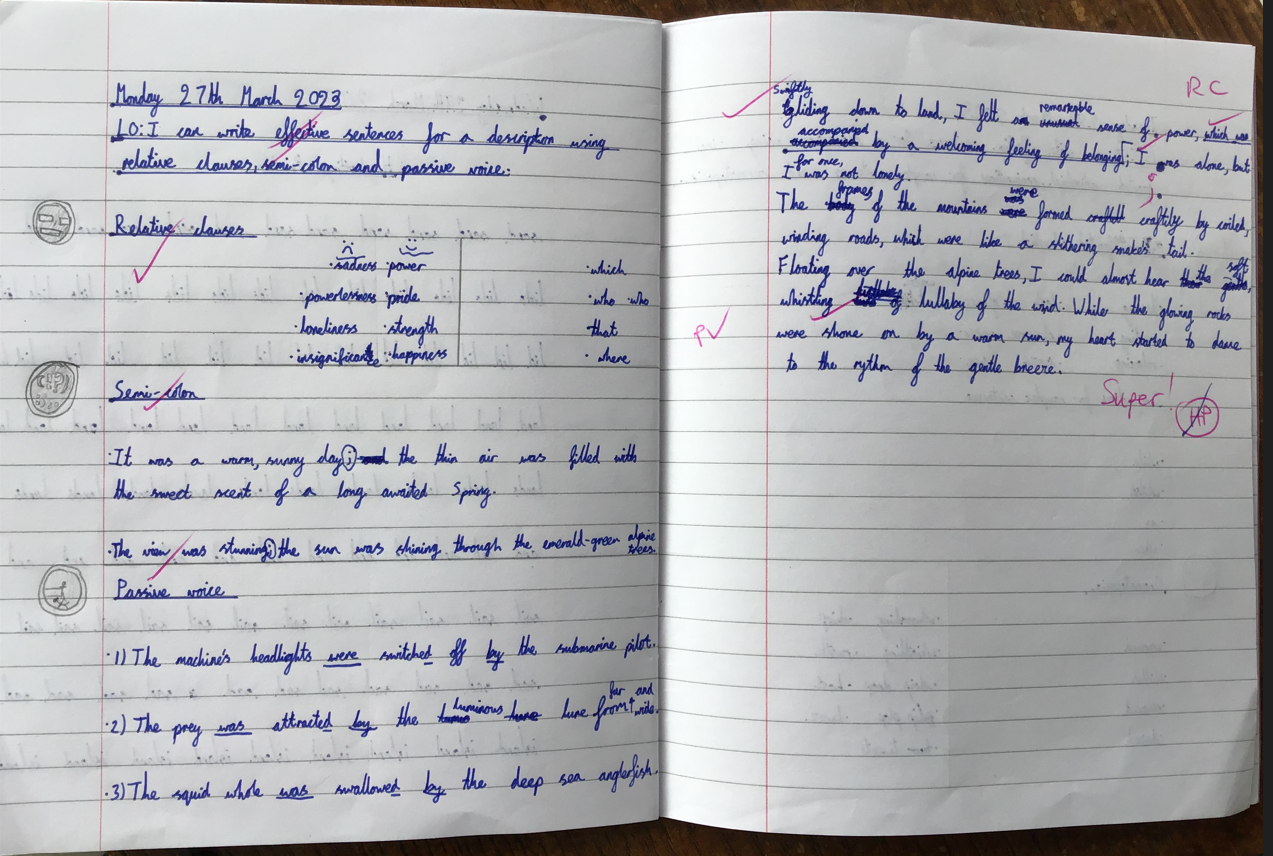 Monday 27th March 2023
LO: I can write effective sentences for a description using
relative clauses, semi-colon and passive voice.
Relative clauses
·sadness ·power ·which
·powerlessness ·pride ·who ·who
·loneliness ·strength that
·insignificante ·happiness ·where
Semi-colon
·It was a warm, sunny day; and the thin air was filled with
the sweet scent of a long awaited Spring.
·The view was stunning; the sun was shining through the emerald-green alpine
trees.
Passive voice
·1) The machine's headlights were switched off by the submarine pilot.
far and
·2) The prey was attracted by the luminous lure from wide.
·3) The squid whole was swallowed by the deep sea anglerfish.
RC
Swiftly
gliding down to land, I felt an unusual remarkable sense of power, which was
accompanied
accompanied by a welcoming feeling of belonging; I was alone, but
for once,
I was not lonely.
frames were
The of the mountains formed craftily by coiled,
winding roads, which were like a slithering snakes tail.
Floating over the alpine trees, I could almost hear the soft gentle,
whistling lullaby of the wind. While the glowing rocks
PV
were shone on by a warm sun, my heart started to dance
to the rythm of the gentle breeze.
Super!
HP